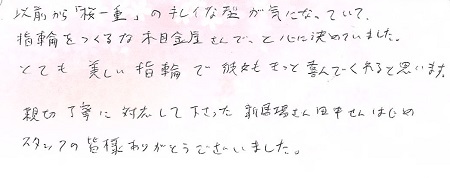 以前から「桜一重」のキレイな型が気になっていて、
指輪をつくるな木目金屋さんで、と心に決めていました。
とても美しい指輪で彼女もきっと喜んでくれると思います
親切丁寧に対応して下さった新居場さん田中さんはじめ
スタッフの皆様ありがとうございました。